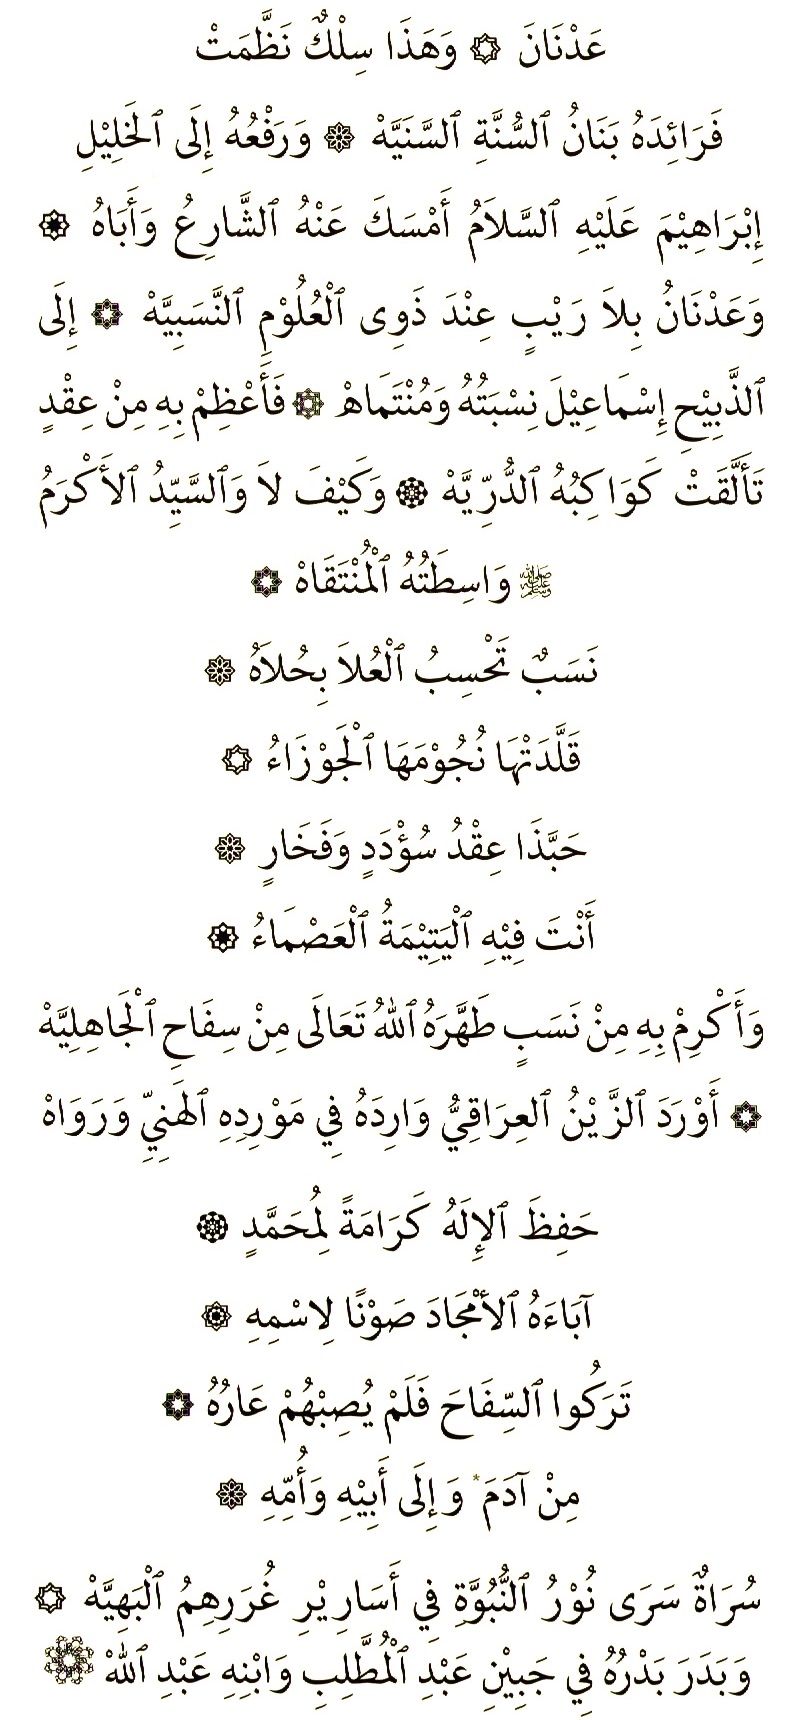 عَدْنَانَ ۞ وَهَذَا سِلْكٌ نَظَّمَتْ
فَرَائِدَهُ بَنَانُ ٱلسُّنَّةِ ٱلسَّنَيَّهْ ۞ وَرَفْعُهُ إِلَى ٱلْخَلِيْلِ
إِبْرَاهِيْمَ عَلَيْهِ ٱلسَّلاَمُ أَمْسَكَ عَنْهُ ٱلشَّارِعُ وَأَبَاهُ ۞
وَعَدْنَانُ بِلاَ رَيْبٍ عِنْدَ ذَوِى ٱلْعُلُوْمِ ٱلنَّسَبِيَّهْ ۞ إِلَى
ٱلذَّبِيْحِ إِسْمَاعِيْلَ نِسْبَتُهُ وَمُنْتَمَاهْ ۞ فَأَعْظِمْ بِهِ مِنْ عِقْدٍ
تَأَلَّقَتْ كَوَاكِبُهُ ٱلدُّرِّيَّهْ ۞ وَكَيْفَ لاَ وَٱلسَّيِّدُ ٱلأَكْرَمُ
ﷺ وَاسِطَتُهُ ٱلْمُنْتَقَاهْ ۞
نَسَبٌ تَحْسِبُ ٱلْعُلاَ بِحُلاَهُ ۞
قَلَّدَتْهَا نُجُوْمَهَا ٱلْجَوْزَاءُ ۞
حَبَّذَا عِقْدُ سُؤْدَدٍ وَفَخَارٍ ۞
أَنْتَ فِيْهِ ٱلْيَتِيْمَةُ ٱلْعَصْمَاءُ ۞
وَأَكْرِمْ بِهِ مِنْ نَسَبٍ طَهَّرَهُ ٱللهُ تَعَالَى مِنْ سِفَاحِ ٱلْجَاهِلِيَّهْ
۞ أَوْرَدَ ٱلزَّيْنُ ٱلعِرَاقِيُّ وَارِدَهُ فِي مَوْرِدِهِ ٱلهَنِيِّ وَرَوَاهْ
حَفِظَ ٱلإِلَهُ كَرَامَةً لِمُحَمَّدٍ ۞
آبَاءَهُ ٱلأَمْجَادَ صَوْنًا لِاسْمِهِ ۞
تَرَكُوا ٱلسِّفَاحَ فَلَمْ يُصِبْهُمْ عَارُهُ ۞
مِنْ آدَمَ * وَإِلَى أَبِيْهِ وَأُمِّهِ ۞
سُرَاةٌ سَرَى نُوْرُ ٱلنُّبُوَّةِ فِي أَسَارِيْرِ غُرَرِهِمُ ٱلْبَهِيَّهْ ۞
وَبَدَرَ بَدْرُهُ فِي جَبِيْنِ عَبْدِ ٱلْمُطَّلِبِ وَابْنِهِ عَبْدِ ٱللهْ ۞